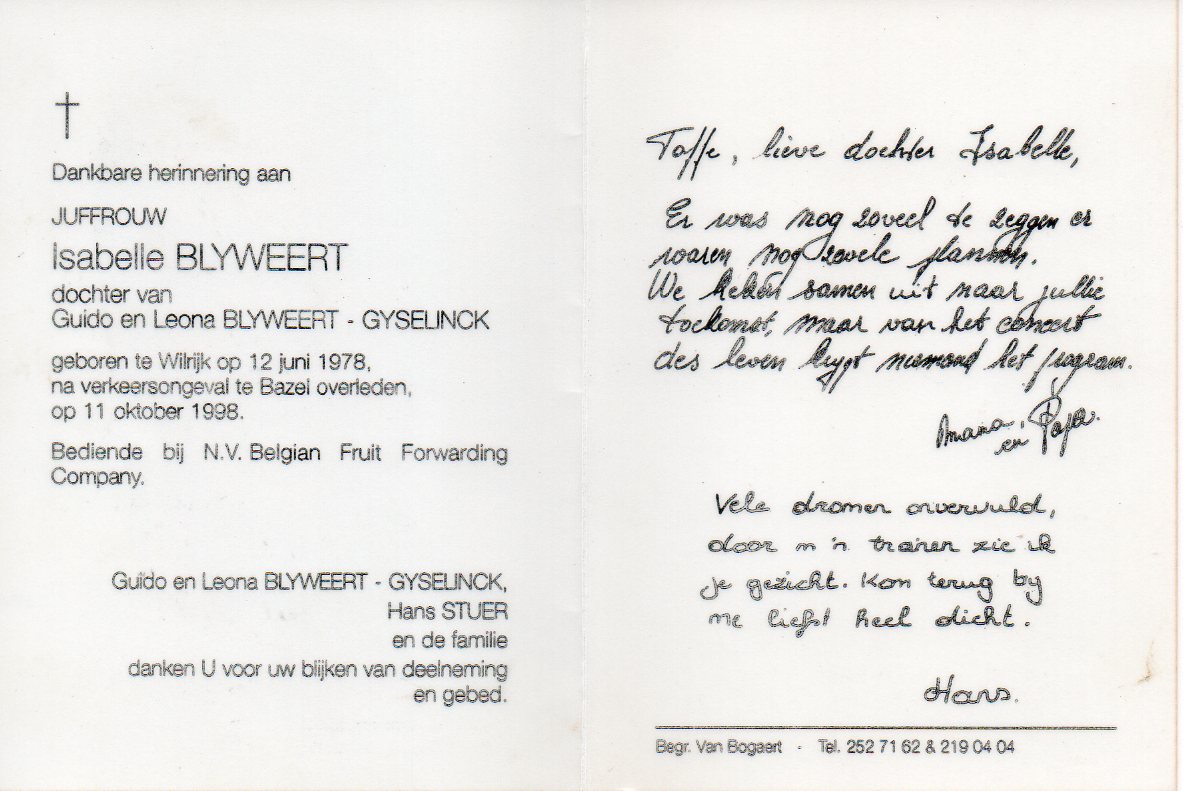 Dankbare herinnering aan
JUFFROUW
Isabelle BLYWEERT
dochter van
Guido en Leona BLYWEERT - GYSELINCK
geboren te Wilrijk op 12 juni 1978,
na verkeersongeval te Bazel overleden,
op 11 oktober 1998.
Bediende bij N.V. Belgian Fruit Forwarding
Company.
Guido en Leona BLYWEERT - GYSELINCK,
Hans STUER
en de familie
danken U voor uw blijken van deelneming
en gebed.
Toffe, lieve dochter Isabelle,
Er was nog zoveel te zeggen er
waren nog zovele plannen.
We keken samen uit naar jullie
toekomst, maar van het concert
des leven krijgt niemand het program.
Mama en Papa.
Vele dromen onvervuld,
door m'n tranen zie ik
je gezicht. Kon terug bij
me liefst heel dicht.
Hans.
Begr. Van Bogaert - Tel. 252 71 62 & 219 04 04